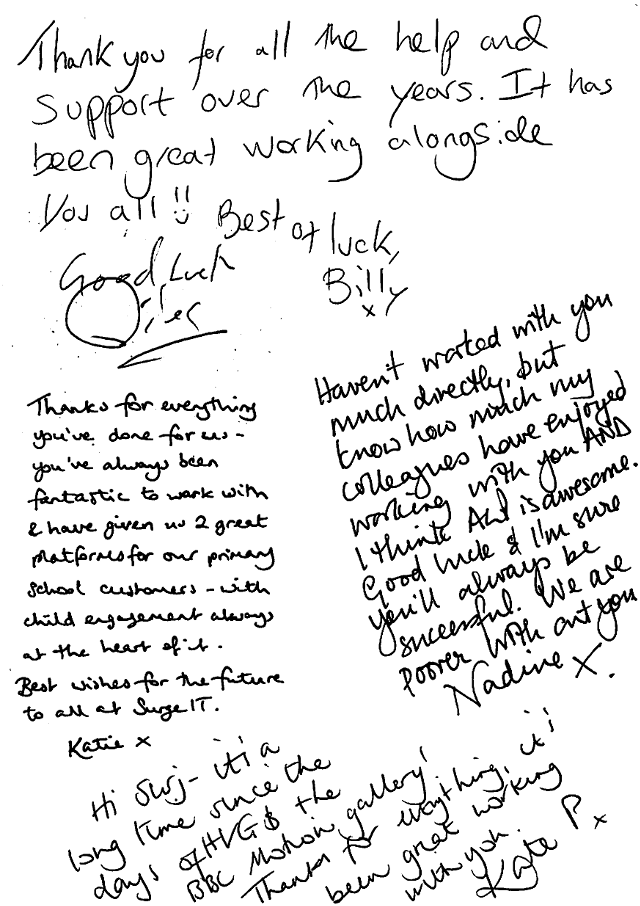 Thank you for all the help and
Support over the years. It has
been great working alongside
You all !!
Best of luck,
Billy
x
Good Luck
Giles
Thanks for everything
you've done for us -
you've always been
fantastic to work with
& have given us 2 great
platforms for our primary
school customers - with
child engagement always
at the heart of it.
Best wishes for the future
to all at Surge IT.
Katie x
Haven't worked with you
much directly, but
know how much my
colleagues have enjoyed
working with you AND
I think is awesome.
Good luck & I'm sure
you'll always be
successful. We are
poorer with out you
Nadine X.
Hi Surj - it's a
long time since the
days of & the
BBC Motion gallery!
Thanks for everything, it's
been great working
with you.
Kate P x